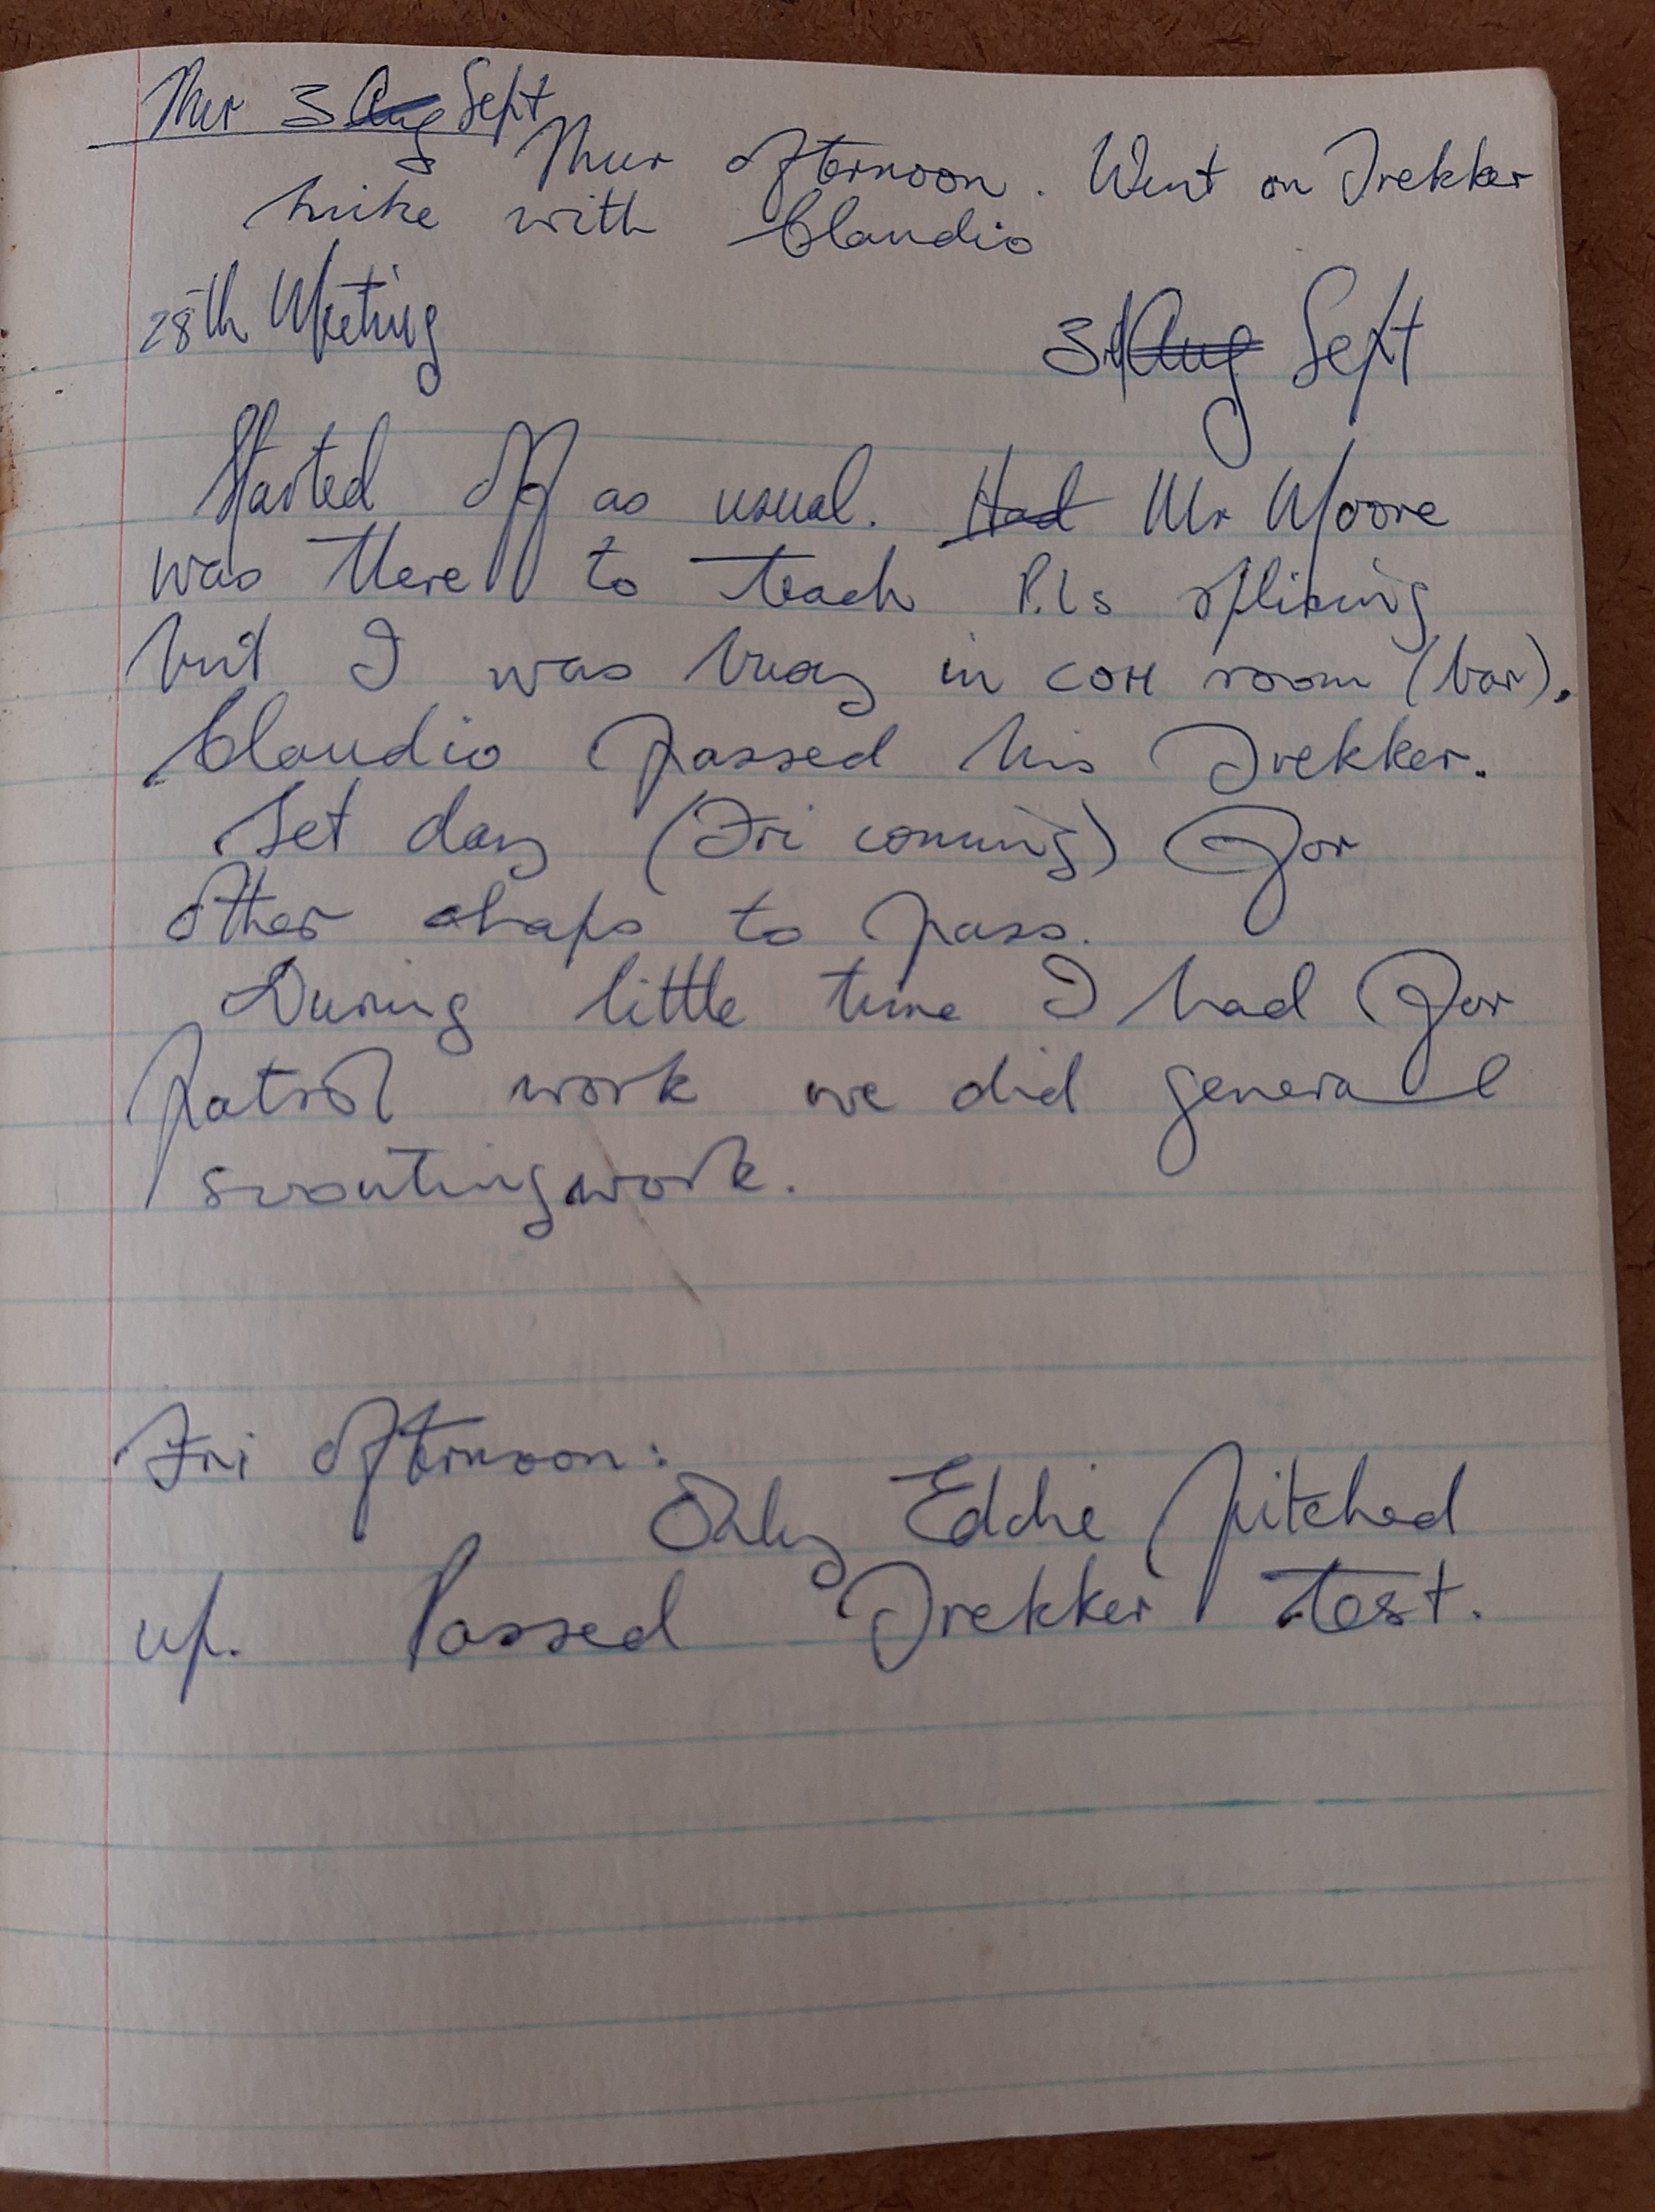 Thur 3 Aug Sept
Thur afternoon. Went on Trekker
hike with Claudio
28th Meeting
3rd Aug Sept
Started off as usual. Had Mr Moore
was there to teach P.Ls splicing
but I was busy in COH room (bar).
Claudio passed his Trekker.
Set day (Fri coming) for
other chaps to pass.
During little time I had for
patrol work we did general
scouting work.
Fri afternoon:
Only Eddie pitched
up. Passed Trekker test.